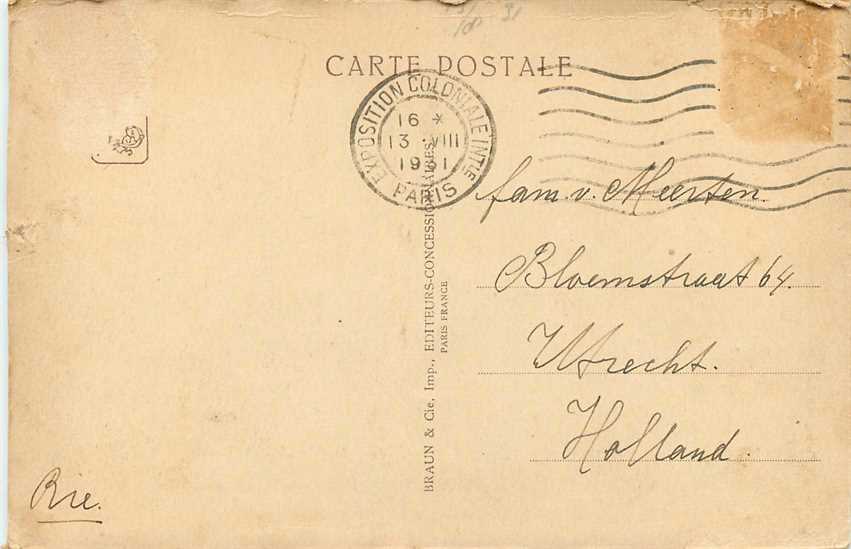 CARTE POSTALE
EXPOSITION COLONIALE INTLE
16 *
13 VIII
1931
PARIS
fam. v. Meerten.
Bloemstraat 64.
Utrecht.
Holland.
Rie.
BRAUN & Cie, Imp., EDITEURS-CONCESSIONNAIRES
PARIS FRANCE